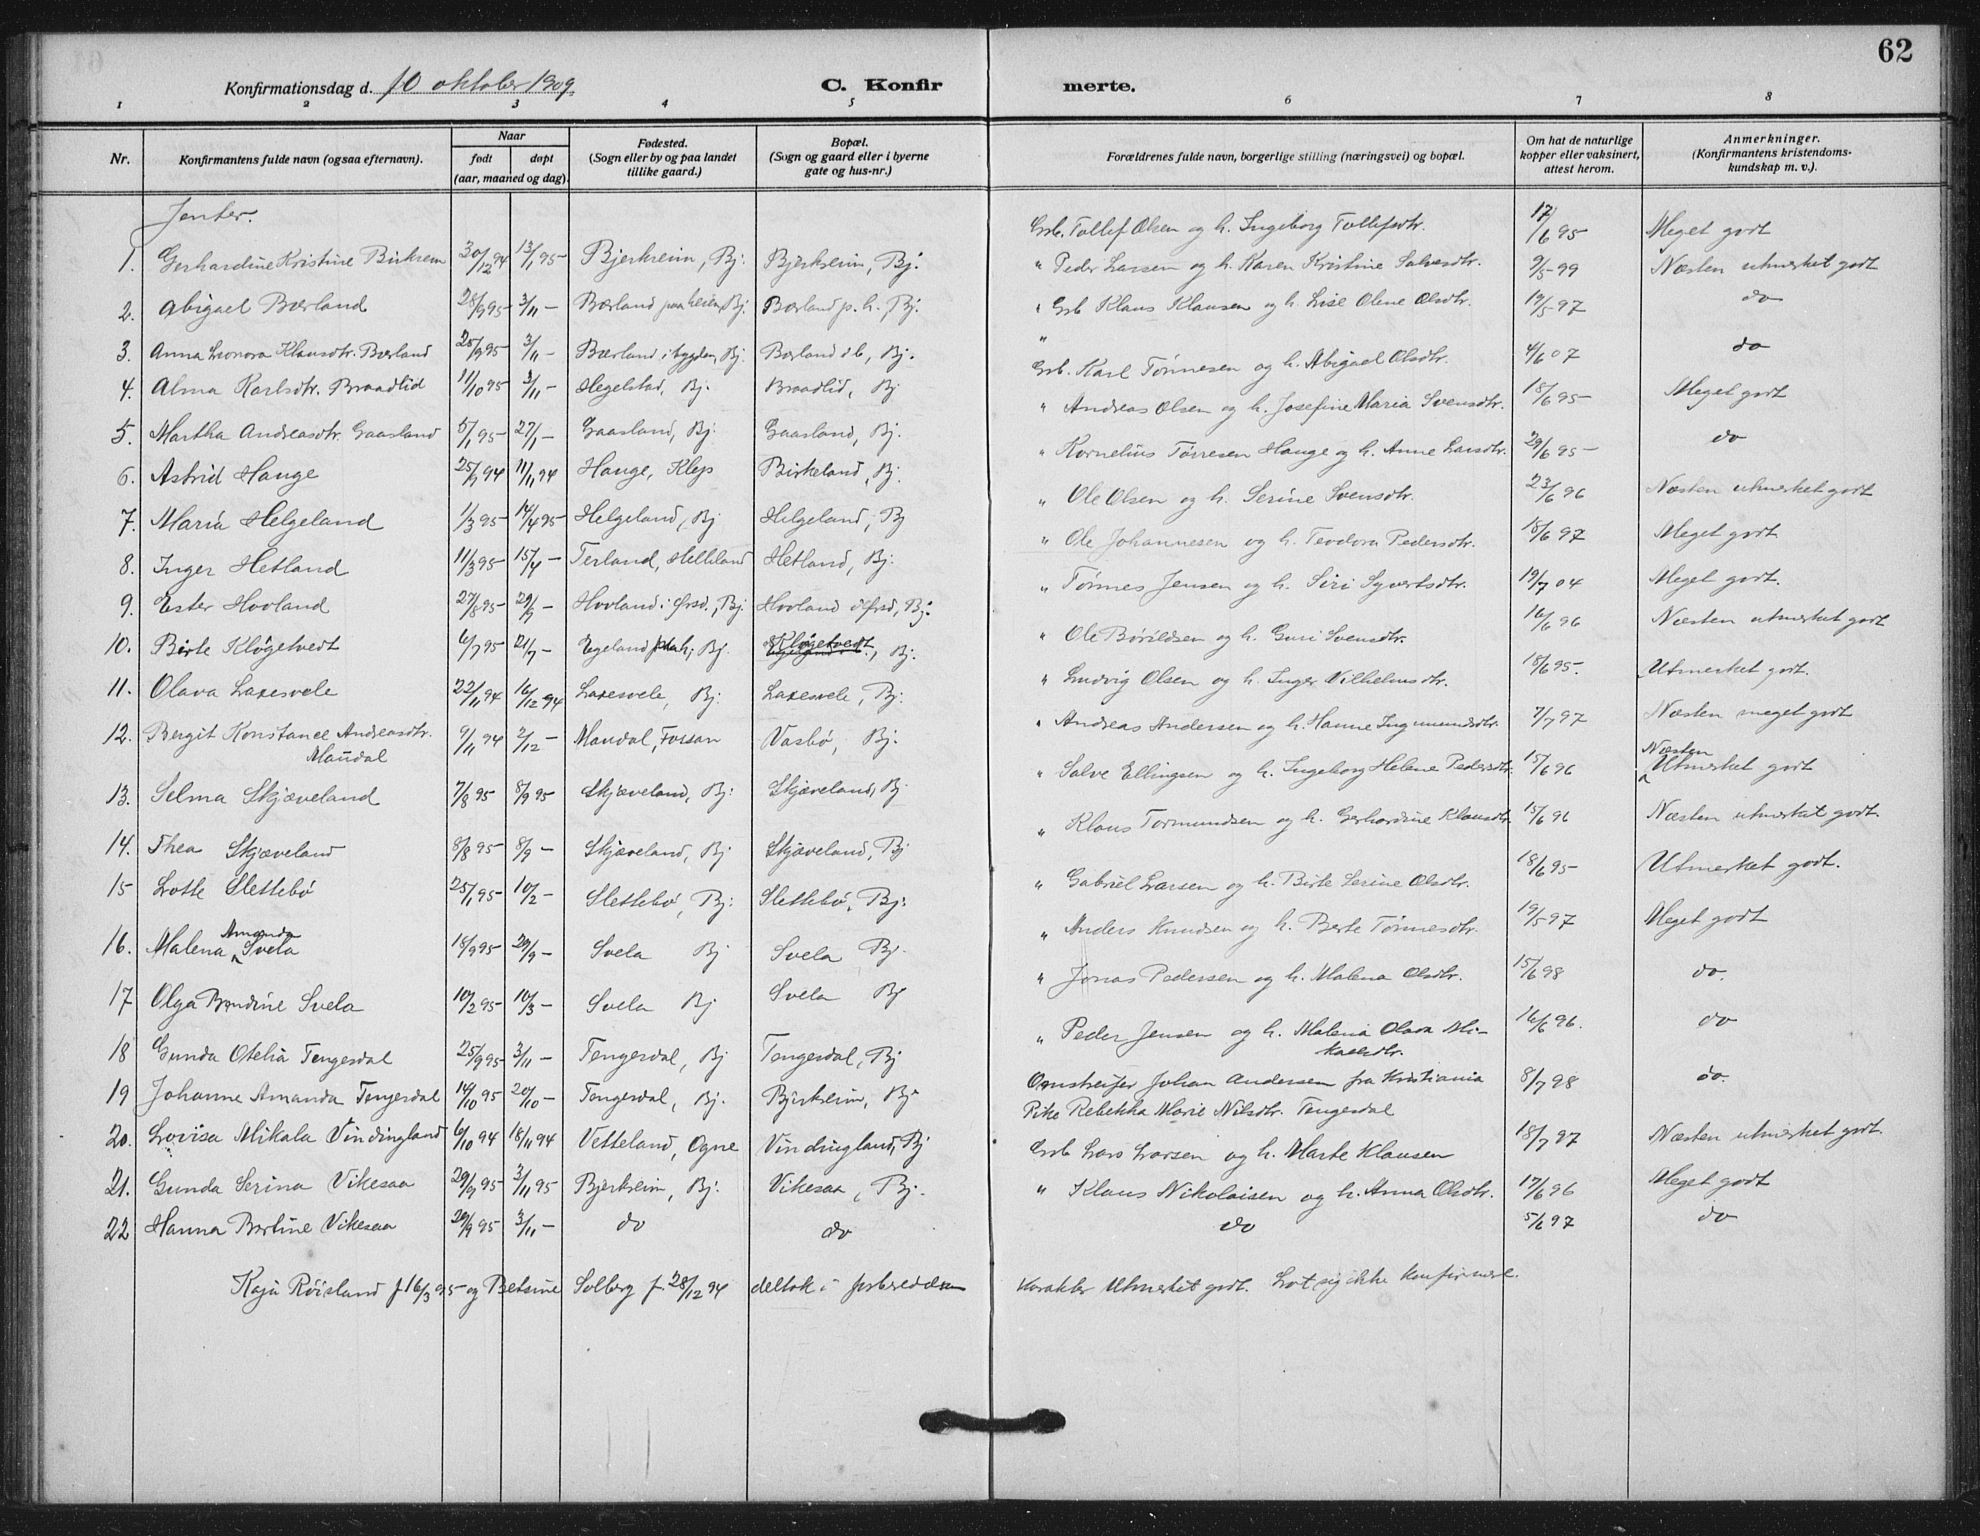 62
Konfirmationsdag d. 10 oktober 1909.
C. Konfirmerte.
1 2 3 4 5 6 7 8
Nr.
Konfirmantens fulde navn (ogsaa efternavn).
Naar
født
døpt
(aar, maaned og dag).
Fødested.
(Sogn eller by og paa landet
tillike gaard.)
Bopæl.
(Sogn og gaard eller i byerne
gate og hus-nr.)
Forældrenes fulde navn, borgerlige stilling (næringsvei) og bopæl.
Om hat de naturlige
kopper eller vaksinert,
attest herom.
Anmerkninger.
(Konfirmantens kristendoms-
kundskap m. v.).
Jenter.
1. Gerhardine Kristine Birkrem 30/12 94 13/1 95 Bjerkreim, Bj. Bjerkreim, Bj. Grb. Tollef Olsen og h. Ingeborg Tollefsdtr. 17/6 95 Meget godt
2. Abigael Bærland 28/9 95 3/11 – Bærland paa heien, Bj. Bærland p. h., Bj. " Peder Larsen og h. Karen Kristine Salvesdtr. 9/5 99 Næsten utmerket godt
3. Anna Leonora Klausdtr. Bærland 25/9 95 3/11 – Bærland i bygden, Bj. Bærland i b, Bj. " Grb Klaus Klausen og h. Lise Oline Olsdtr. 19/5 97 do
4. Alma Karlsdtr. Braadlid 11/10 95 3/11 – Hegelstad, Bj. Braadlid, Bj Grb. Karl Tønnesen og h. Abigael Olsdtr. 4/6 07 do
5. Martha Andreasdtr. Gaasland 5/1 95 27/1 – Gaasland, Bj. Gaasland, Bj. " Andreas Olsen og h. Josefine Maria Svensdtr. 18/6 95 Meget godt
6. Astrid Hauge 25/9 94 11/11 94 Hauge, Klep Birkeland, Bj. " Kornelius Tørresen Hauge og h. Anne Larsdtr. 29/6 95 do
7. Maria Helgeland 1/3 95 14/4 95 Helgeland, Bj Helgeland, Bj " Ole Olsen og h. Serine Svensdtr. 23/6 96 Næsten utmerket godt
8. Inger Hetland 11/3 95 15/4 – Terland, Helleland Hetland, Bj. " Ole Johannesen og h. Teodora Pedersdtr. 18/6 97 Meget godt
9. Ester Hovland 27/8 95 29/9 – Hovland i Ørsd., Bj. Hovland i Ørsd, Bj. " Tønnes Jensen og h. Siri Syvertsdtr. 19/7 04 Meget godt.
10. Birte Kløgetvedt 6/7 95 21/7 – Egeland, Bj. Kløgetvedt, Bj. " Ole Børildsen og h. Guri Svensdtr. 16/6 96 Næsten utmerket godt
11. Olava Laxesvele 22/11 94 16/12 94 Laxesvele, Bj. Laxesvele, Bj. " Ludvig Olsen og h. Inger Vilhelmsdtr. 18/6 95. Utmerket godt.
12. Bergit Konstance Andreasdtr.
Maudal 9/11 94 2/12 – Maudal, Forsan Vasbø, Bj. " Andreas Andersen og h. Hanne Ingmundsdtr. 7/7 97 Næsten meget godt
13. Selma Skjæveland 7/8 95 8/9 95 Skjæveland, Bj. Skjæveland, Bj " Salve Ellingsen og h. Ingeborg Helene Pedersdtr. 15/6 96 Næsten Utmerket godt
14. Thea Skjæveland 8/8 95 8/9 – Skjæveland, Bj Skjæveland, Bj " Klaus Tormundsen og h. Gerhardine Klausdtr. 15/6 96 Næsten utmerket godt.
15 Lotte Slettebø 25/1 95 10/2 – Slettebø, Bj. Slettebø, Bj. " Gabriel Larsen og h. Birte Serine Olsdtr. 18/6 95 Utmerket godt.
16. Malena Amanda Svela 18/9 95 29/9 – Svela Bj Svela Bj. " Anders Knudsen og h. Berte Tønnesdtr. 19/5 97 Meget godt
17 Olga Bendine Svela 10/2 95 10/3 – Svela Bj Svela Bj " Jonas Pedersen og h. Malena Olsdtr. 15/6 98 do.
18 Gunda Otelia Tengesdal 25/9 95 3/11 – Tengesdal, Bj Tengesdal, Bj " Peder Jensen og h. Malena Olava Mi-
kaelsdtr. 16/6 96. do
19 Johanne Amanda Tengesdal 14/10 95 20/10 – Tengesdal, Bj. Bjerkreim, Bj. Omstreifer Johan Andersen fra Kristiania
Pike Rebekka Marie Nilsdtr. Tengesdal 8/7 98 do.
20. Lovisa Mikala Vindingland 6/10 94 18/11 94 Vetteland, Ogne Vindingland, Bj Grb Lars Larsen og h. Marte Klausen 18/7 97 Næsten utmerket godt.
21. Gunda Serina Vikesaa 29/9 95 3/11 95 Bjerkreim, Bj. Vikesaa, Bj. " Klaus Nikolaisen og h. Anna Olsdtr. 17/6 96 Meget godt
22 Hanna Bertine Vikesaa 29/9 95 3/11 – do do do 5/6 97 do
Kaja Röisland f. 16/3 95 og Betsine Solberg f. 28/12 94 deltok i forbereddsen Karakter Utmerket godt. Lot sig ikke konfirmere.